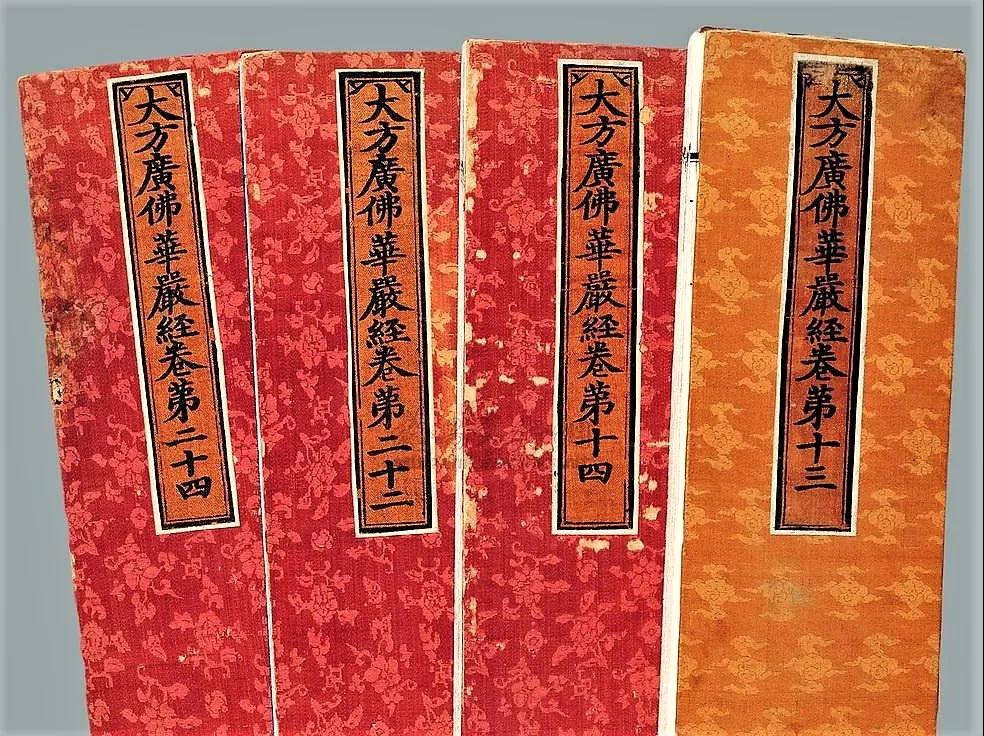 大方廣佛華嚴經卷第十三
大方廣佛華嚴經卷第十四
大方廣佛華嚴經卷第二十二
大方廣佛華嚴經卷第二十四